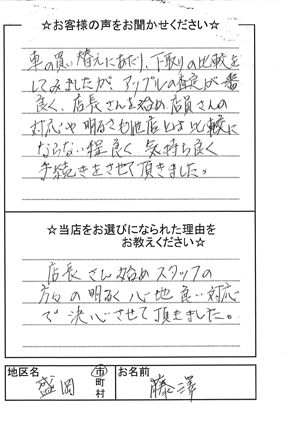 ☆お客様の声をお聞かせください☆
車の買い替えにあたり、下取りの比較を
してみましたが、アップルの査定が一番
良く、店長さんを始め、店員さんの
対応や明るさも他店とは比較に
ならない程良く気持ち良く
手続きをさせて頂きました。
☆当店をお選びになられた理由を
お教えください☆
店長さん始めスタッフの
方々の明るく心地良い対応
で決心させて頂きました。
地区名 盛岡 市町村 お名前 藤澤